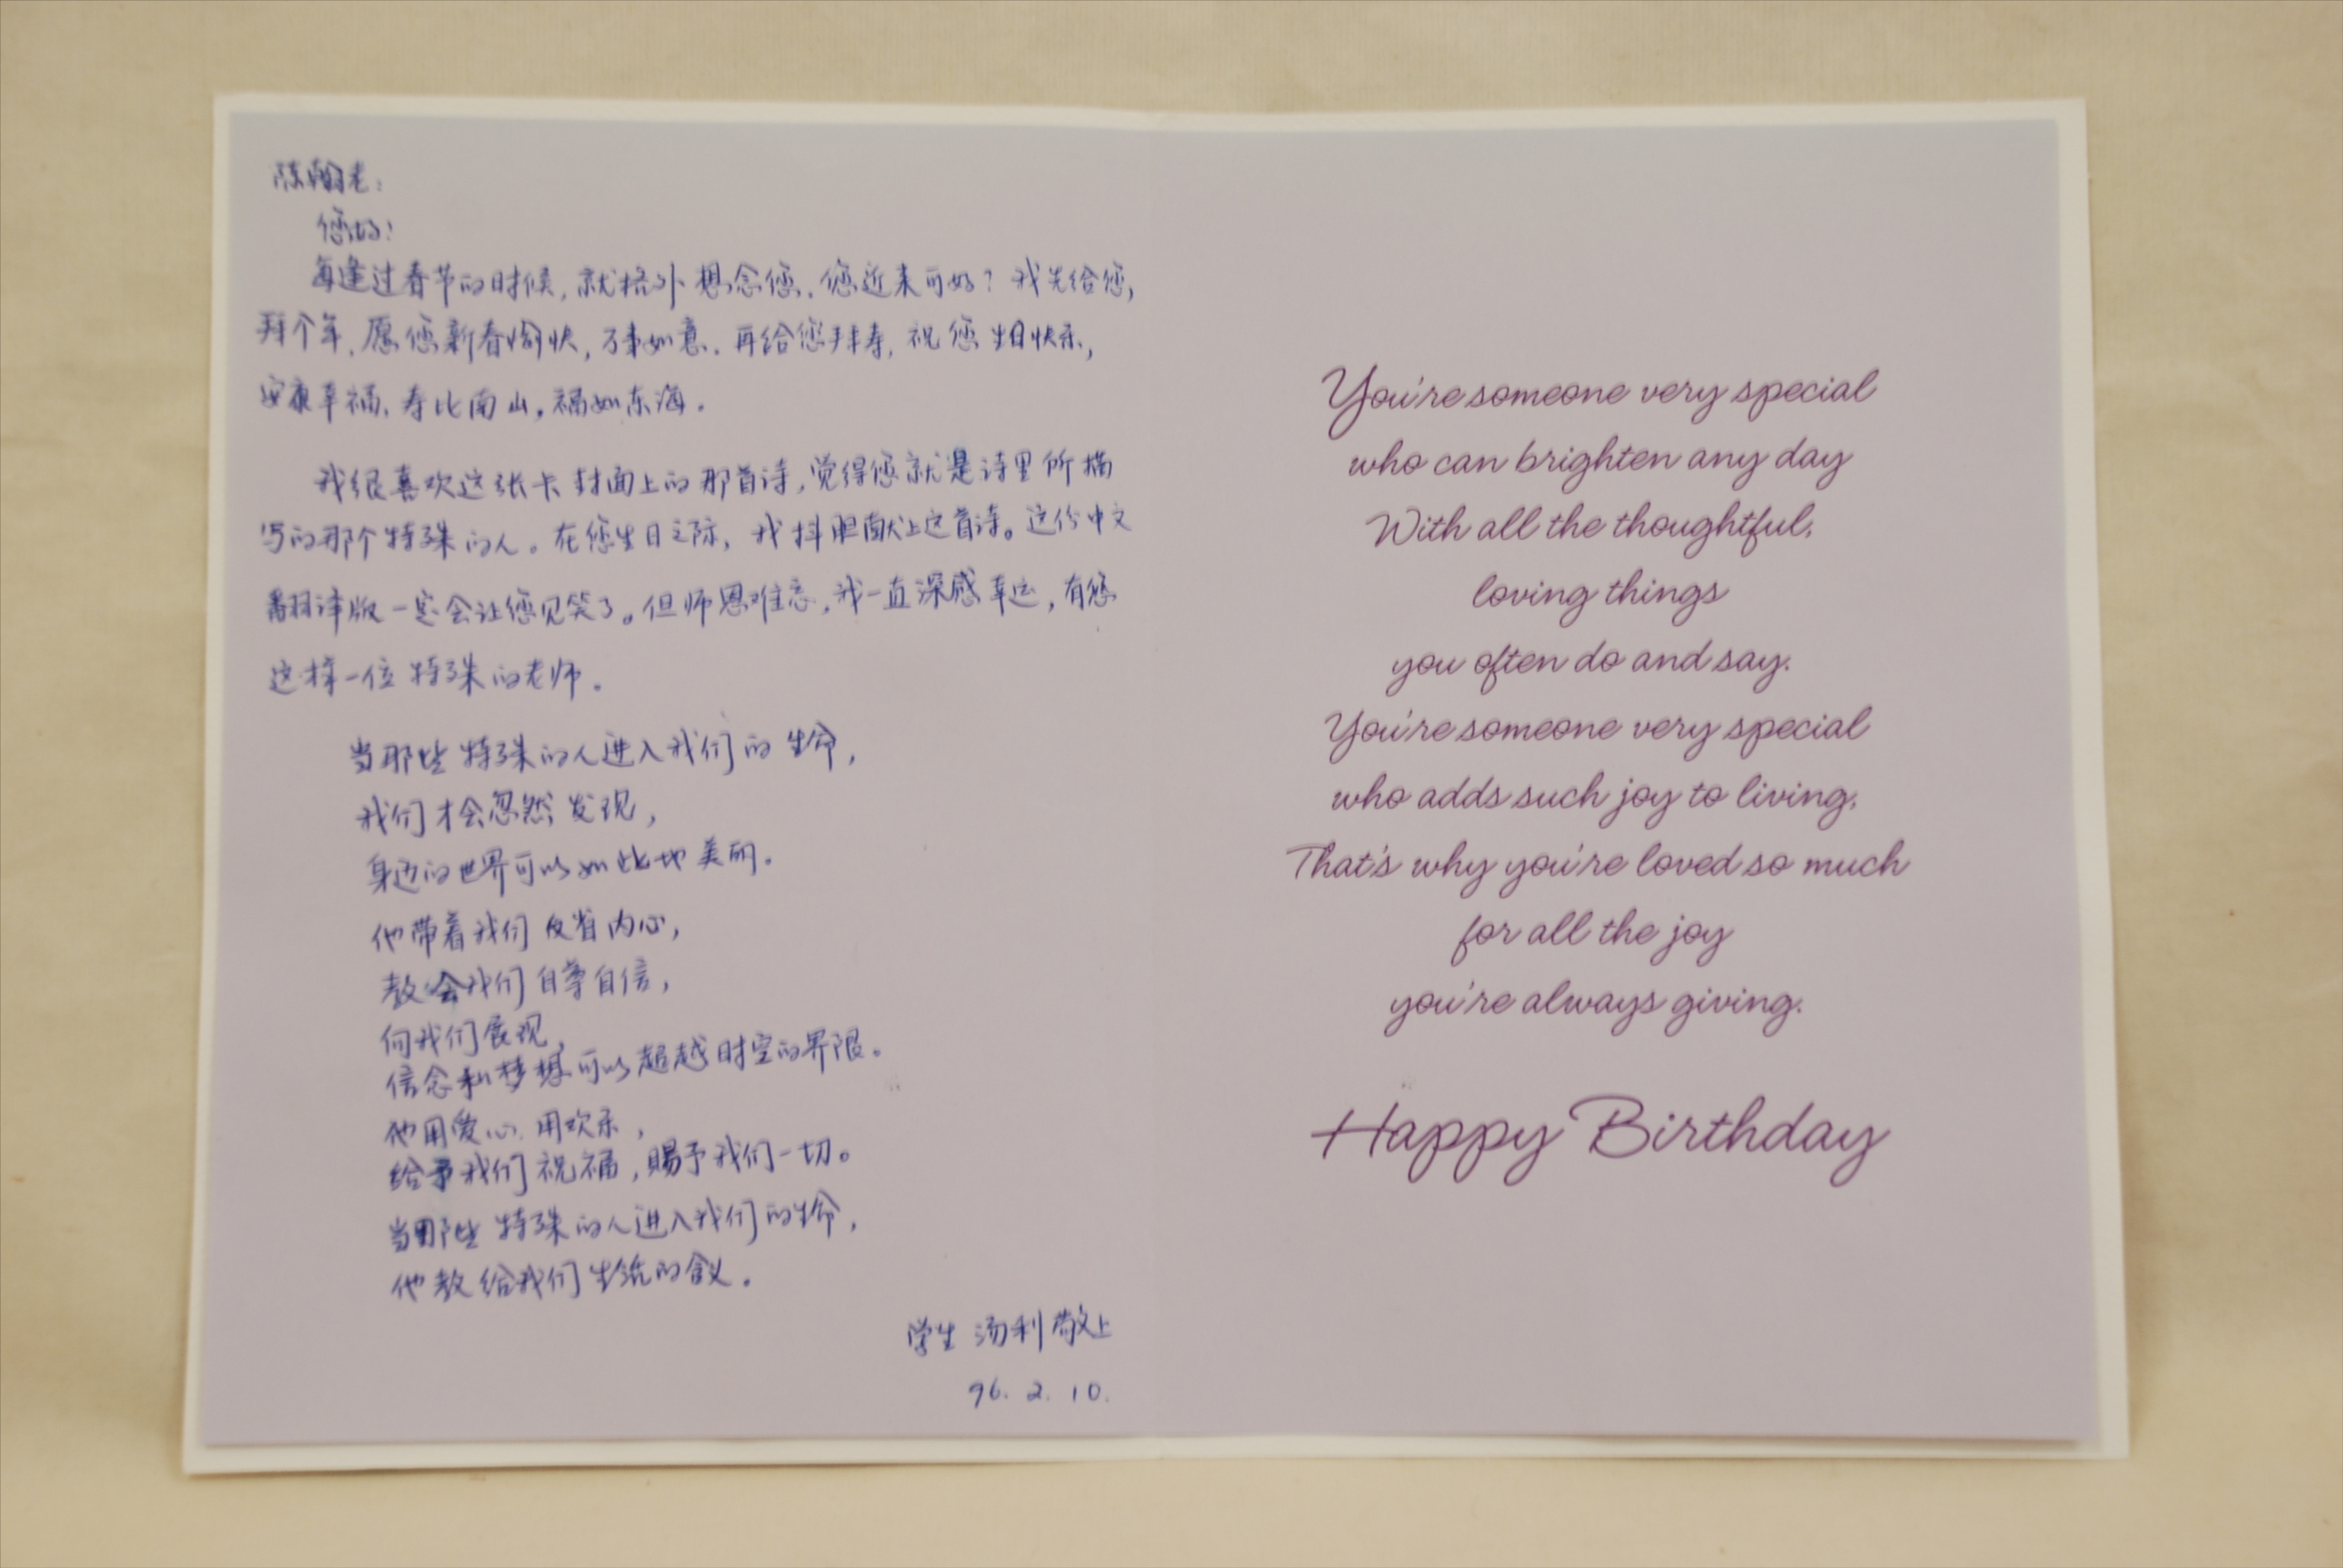 陈翰老:
您好!
每逢过春节的时候,就格外想念您.您近来可好?我先给您,
拜个年.愿您新春愉快,万事如意.再给您拜寿,祝您生日快乐,
安康幸福.寿比南山,福如东海.
我很喜欢这张卡封面上的那首诗,觉得您就是诗里所描
写的那个特殊的人。在您生日之际,我抖胆献上这首诗。这份中文
翻译版一定会让您见笑了。但师恩难忘,我一直深感幸运,有您
这样一位特殊的老师.
当那些特殊的人进入我们的生命,
我们才会忽然发现,
身边的世界可以如此地美丽.
他带着我们反省内心,
教会我们自尊自信,
向我们展现,
信念和梦想可以超越时空的界限。
他用爱心.用欢乐,
给予我们祝福,赐予我们一切。
当那些特殊的人进入我们的生命,
他教给我们生活的含义.
学生 汤利 敬上
96. 2. 10.
You're someone very special
who can brighten any day
With all the thoughtful,
loving things
you often do and say.
You're someone very special
who adds such joy to living,
That's why you're loved so much
for all the joy
you're always giving.
Happy Birthday